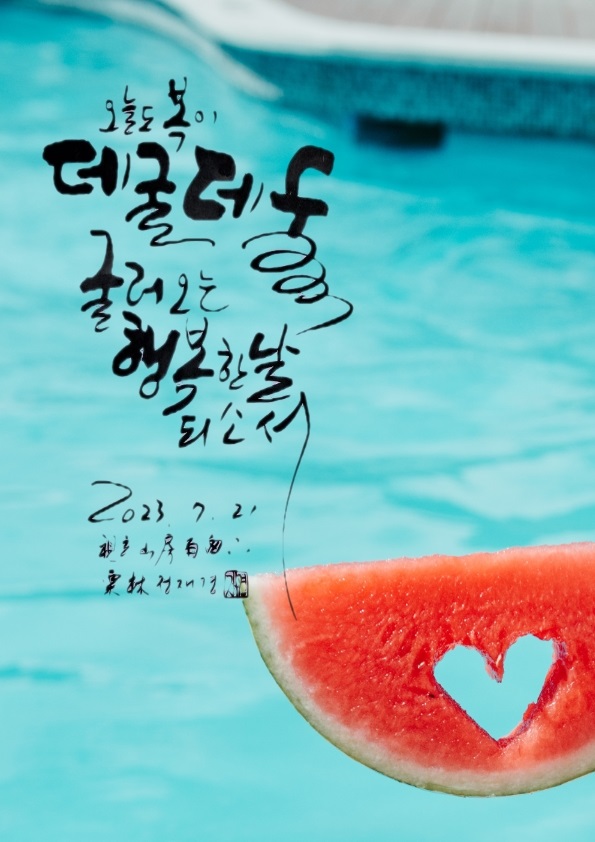 오늘도 복이
데굴데굴
굴러오는
행복한 날
되소서
2023. 7. 21
栗林 정재경